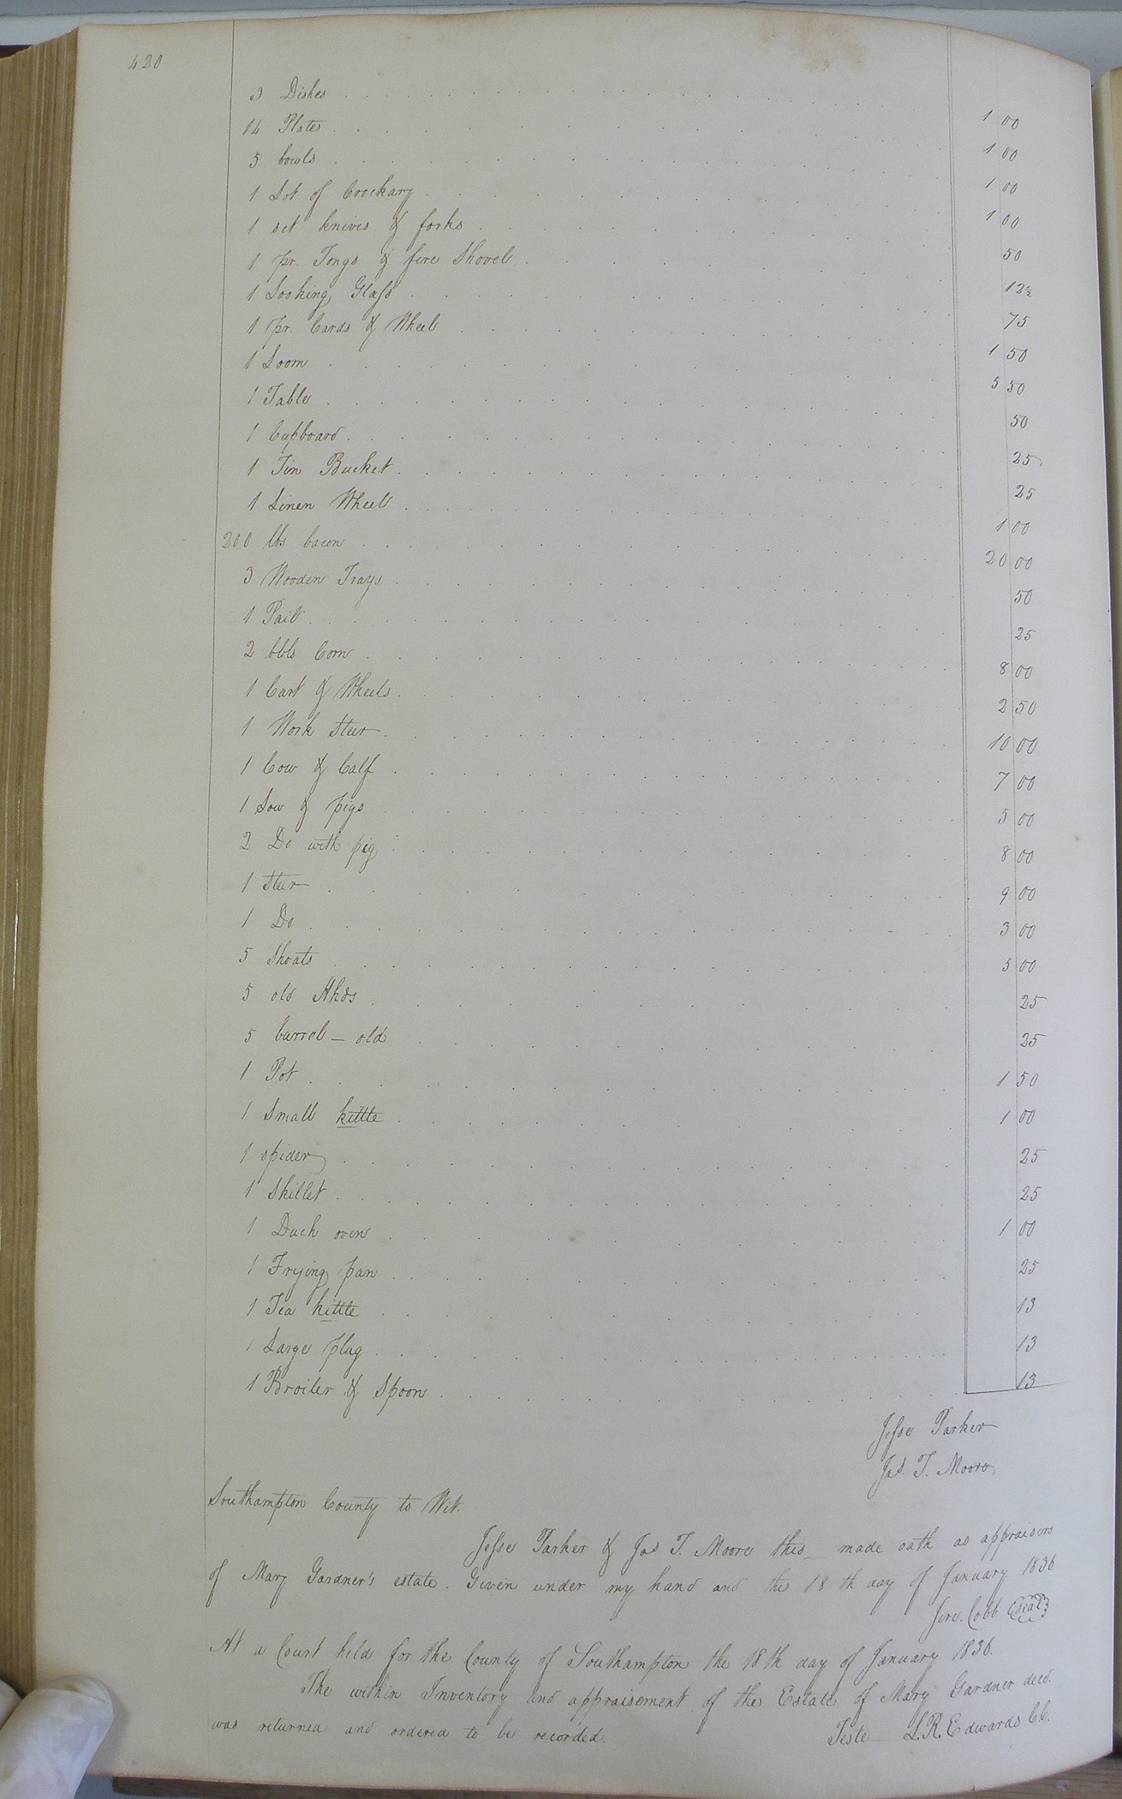 420
3 Dishes 1 00
14 Plates 1 00
5 bowls 1 00
1 Lot of Crockary 1 00
1 set knives & forks 50
1 pr. Tongs & fire Shovel 12½
1 Looking Glass 75
1 pr. Cards & Wheel 1 50
1 Loom 5 50
1 Table 50
1 Cupboard 25
1 Tin Bucket 25
1 Linen Wheel 1 00
200 lbs bacon 20 00
3 Wooden Trays 50
1 Pail 25
2 bbls Corn 8 00
1 Cart & Wheels 2 50
1 Work Steer 10 00
1 Cow & Calf 7 00
1 Sow & pigs 5 00
2 Do with pig 8 00
1 Steer 9 00
1 Do 3 00
5 Shoats 5 00
5 old Hhds 25
5 barrel – old 25
1 Pot 1 50
1 Small kettle 1 00
1 spider 25
1 Skillet 25
1 Duch oven 1 00
1 Frying pan 25
1 Tea kettle 13
1 Large plug 13
1 Broiler & Spoon 13
Jesse Parker
Jas. T. Moore
Southampton County to Wit.
Jesse Parker & Jas T. Moore this – made oath as appraisers
of Mary Gardner's estate. Given under my hand and this 18th day of January 1836
Jere. Cobb (Seal)
At a Court held for the County of Southampton the 18th day of January 1836.
The within Inventory and appraisement of the Estate of Mary Gardner decd.
was returned and ordered to be recorded. Teste – L.R. Edwards CC.